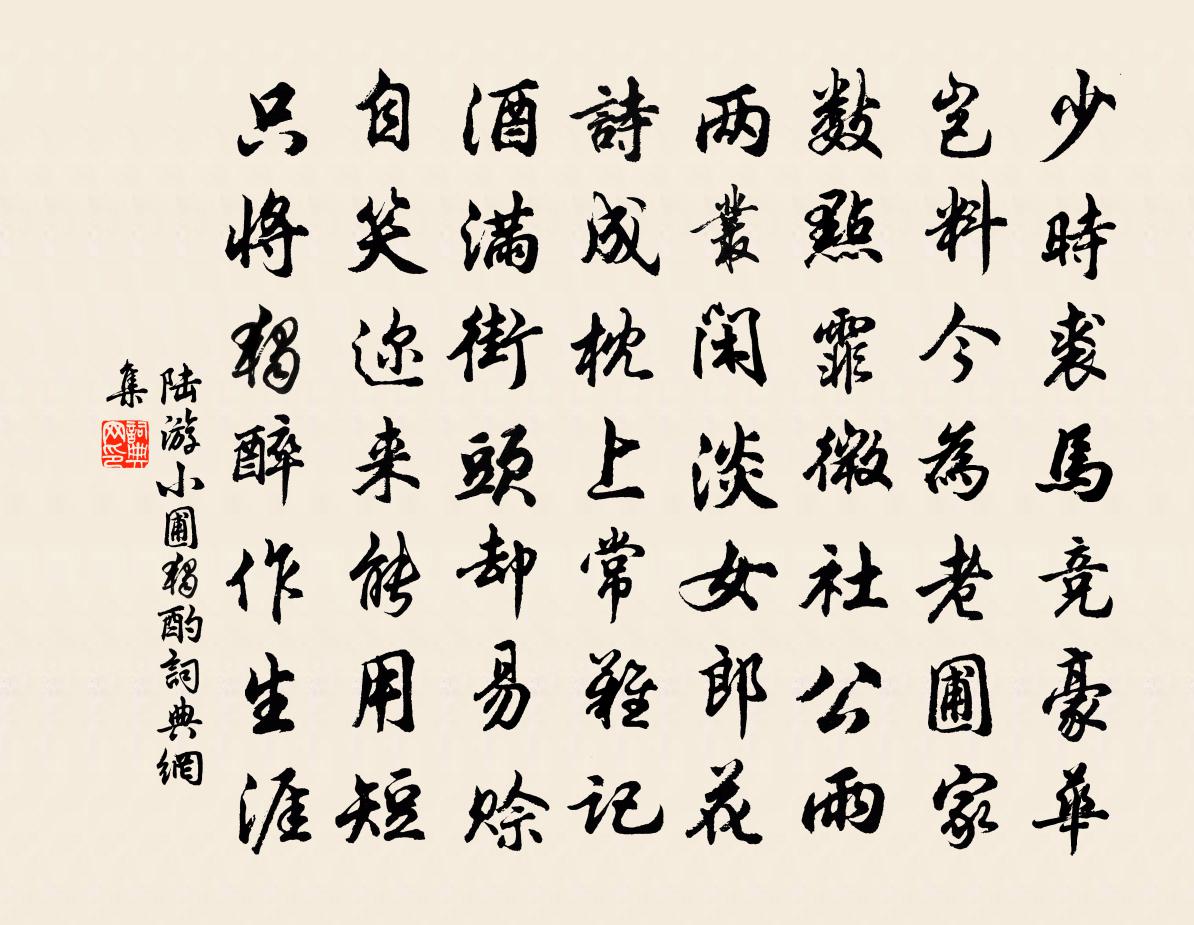 少時裘馬競豪華
豈料今為老圃家
數點霏微社公雨
两叢閑淡女郎花
詩成枕上常難記
酒滿街頭却易賒
自笑邇来能用短
只將獨醉作生涯
陆游小圃獨酌詞典網
集
詞典
网印